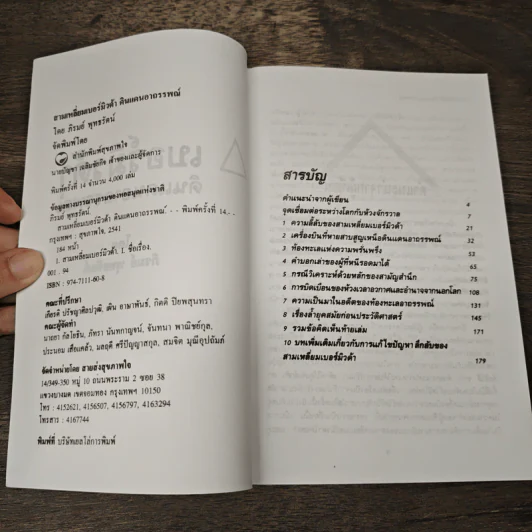 สามเหลี่ยมเบอร์มิวด้า ดินแดนอาถรรพณ์
โดย ภิรมย์ พุทธรัตน์
จัดพิมพ์โดย
สำนักพิมพ์สุขภาพใจ
นายบัญชา เฉลิมชัยกิจ เจ้าของและผู้จัดการ
พิมพ์ครั้งที่ 14 จำนวน 4,000 เล่ม
ข้อมูลทางบรรณานุกรมของหอสมุดแห่งชาติ
ภิรมย์ พุทธรัตน์.
สามเหลี่ยมเบอร์มิวด้า ดินแดนอาถรรพณ์. - - พิมพ์ครั้งที่ 14.- -
กรุงเทพฯ : สุขภาพใจ, 2541
184 หน้า
1. สามเหลี่ยมเบอร์มิวด้า. I. ชื่อเรื่อง.
001 . 94
ISBN : 974-7111-60-8
คณะที่ปรึกษา
เกียรติ ปรัชญาศิลปวุฒิ, ต้น อาษาพันธ์, กิตติ ปิยพสุนทรา
คณะผู้จัดทำ
มาลยา กัลโยธิน, ภัทรา นันทกาญจน์, จันทนา พาณิชย์กูล,
ประนอม เสือแคล้ว, มลฤดี ศรีปัญญาสกุล, สมจิต มุณีอุปถัมภ์
จัดจำหน่ายโดย สายส่งสุขภาพใจ
14/349-350 หมู่ 10 ถนนพระราม 2 ซอย 38
แขวงบางมด เขตจอมทอง กรุงเทพฯ 10150
โทร : 4152621, 4156507, 4156797, 4163294
โทรสาร : 4167744
พิมพ์ที่ บริษัทเกลไล่การพิมพ์
สารบัญ
คำแนะนำจากผู้เขียน 4
จุดเชื่อมต่อระหว่างโลกกับห้วงจักรวาล 7
1 ความลี้ลับของสามเหลี่ยมเบอร์มิวด้า 7
2 เครื่องบินที่หายสาบสูญเหนือดินแดนอาถรรพณ์ 32
3 ห้องทะเลแห่งความพรั่นพรึง 52
4 คำบอกเล่าของผู้ที่หนีรอดมาได้ 65
5 กรณีวิเคราะห์ด้วยหลักของสามัญสำนึก 75
6 การบิดเบือนของห้วงเวลาอวกาศและอำนาจจากนอกโลก 108
7 ความเป็นมาในอดีตของท้องทะเลอาถรรพณ์ 131
8 เรื่องล้ำยุคสมัยก่อนประวัติศาสตร์ 145
9 รวมข้อคิดเห็นท้ายเล่ม 171
10 บทเพิ่มเติมเกี่ยวกับการแก้ไขปัญหา ลึกลับของ
สามเหลี่ยมเบอร์มิวด้า 179